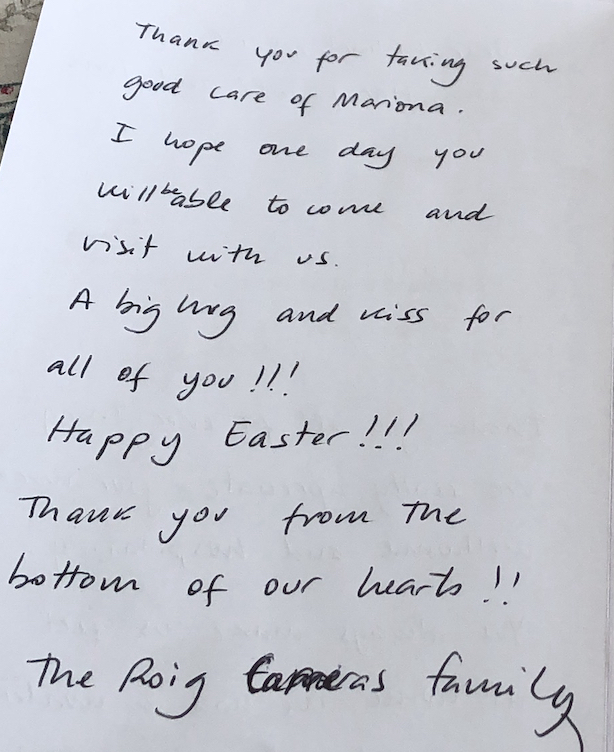 Thank you for taking such
good care of Mariona.
I hope one day you
will be able to come and
visit with us.
A big hug and kiss for
all of you!!!
Happy Easter!!!
Thank you from the
bottom of our hearts!!
The Roig family